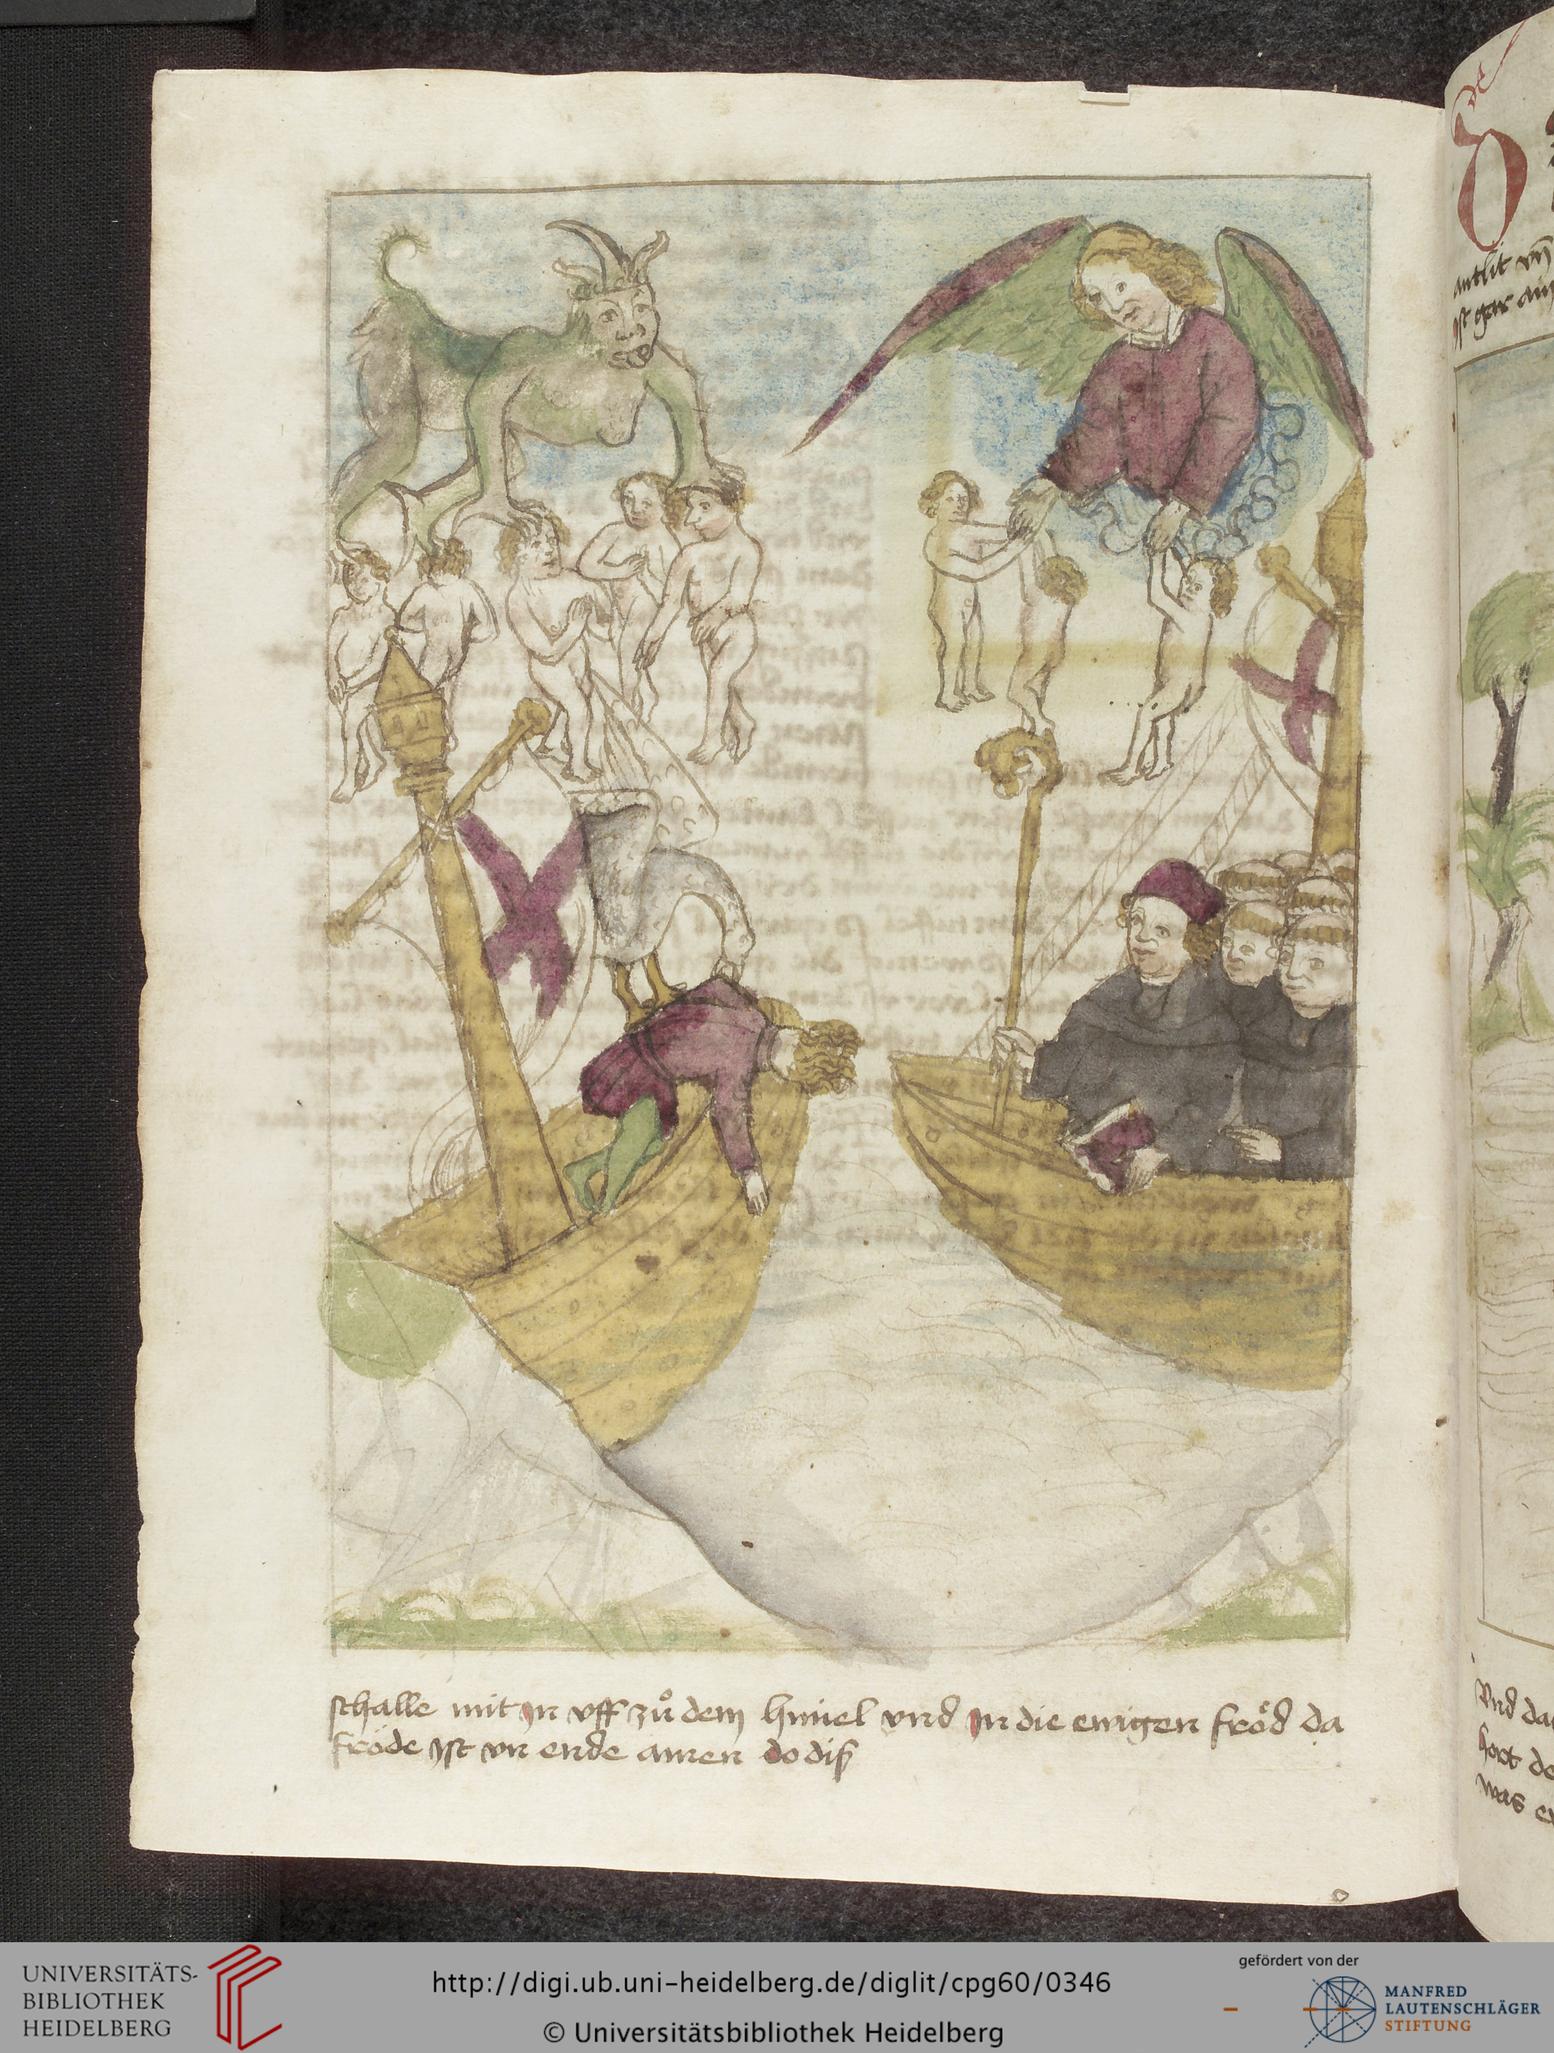 schalle mit In vff zů dem himel vnd In die ewigen fröd da
fröde Ist vn ende amen do diß
antlit vn
Ist gar
vnd
hort de
was
UNIVERSITÄTS-
BIBLIOTHEK
HEIDELBERG
http://digi.ub.uni-heidelberg.de/diglit/cpg60/0346
© Universitätsbibliothek Heidelberg
gefördert von der
MANFRED
LAUTENSCHLÄGER
STIFTUNG